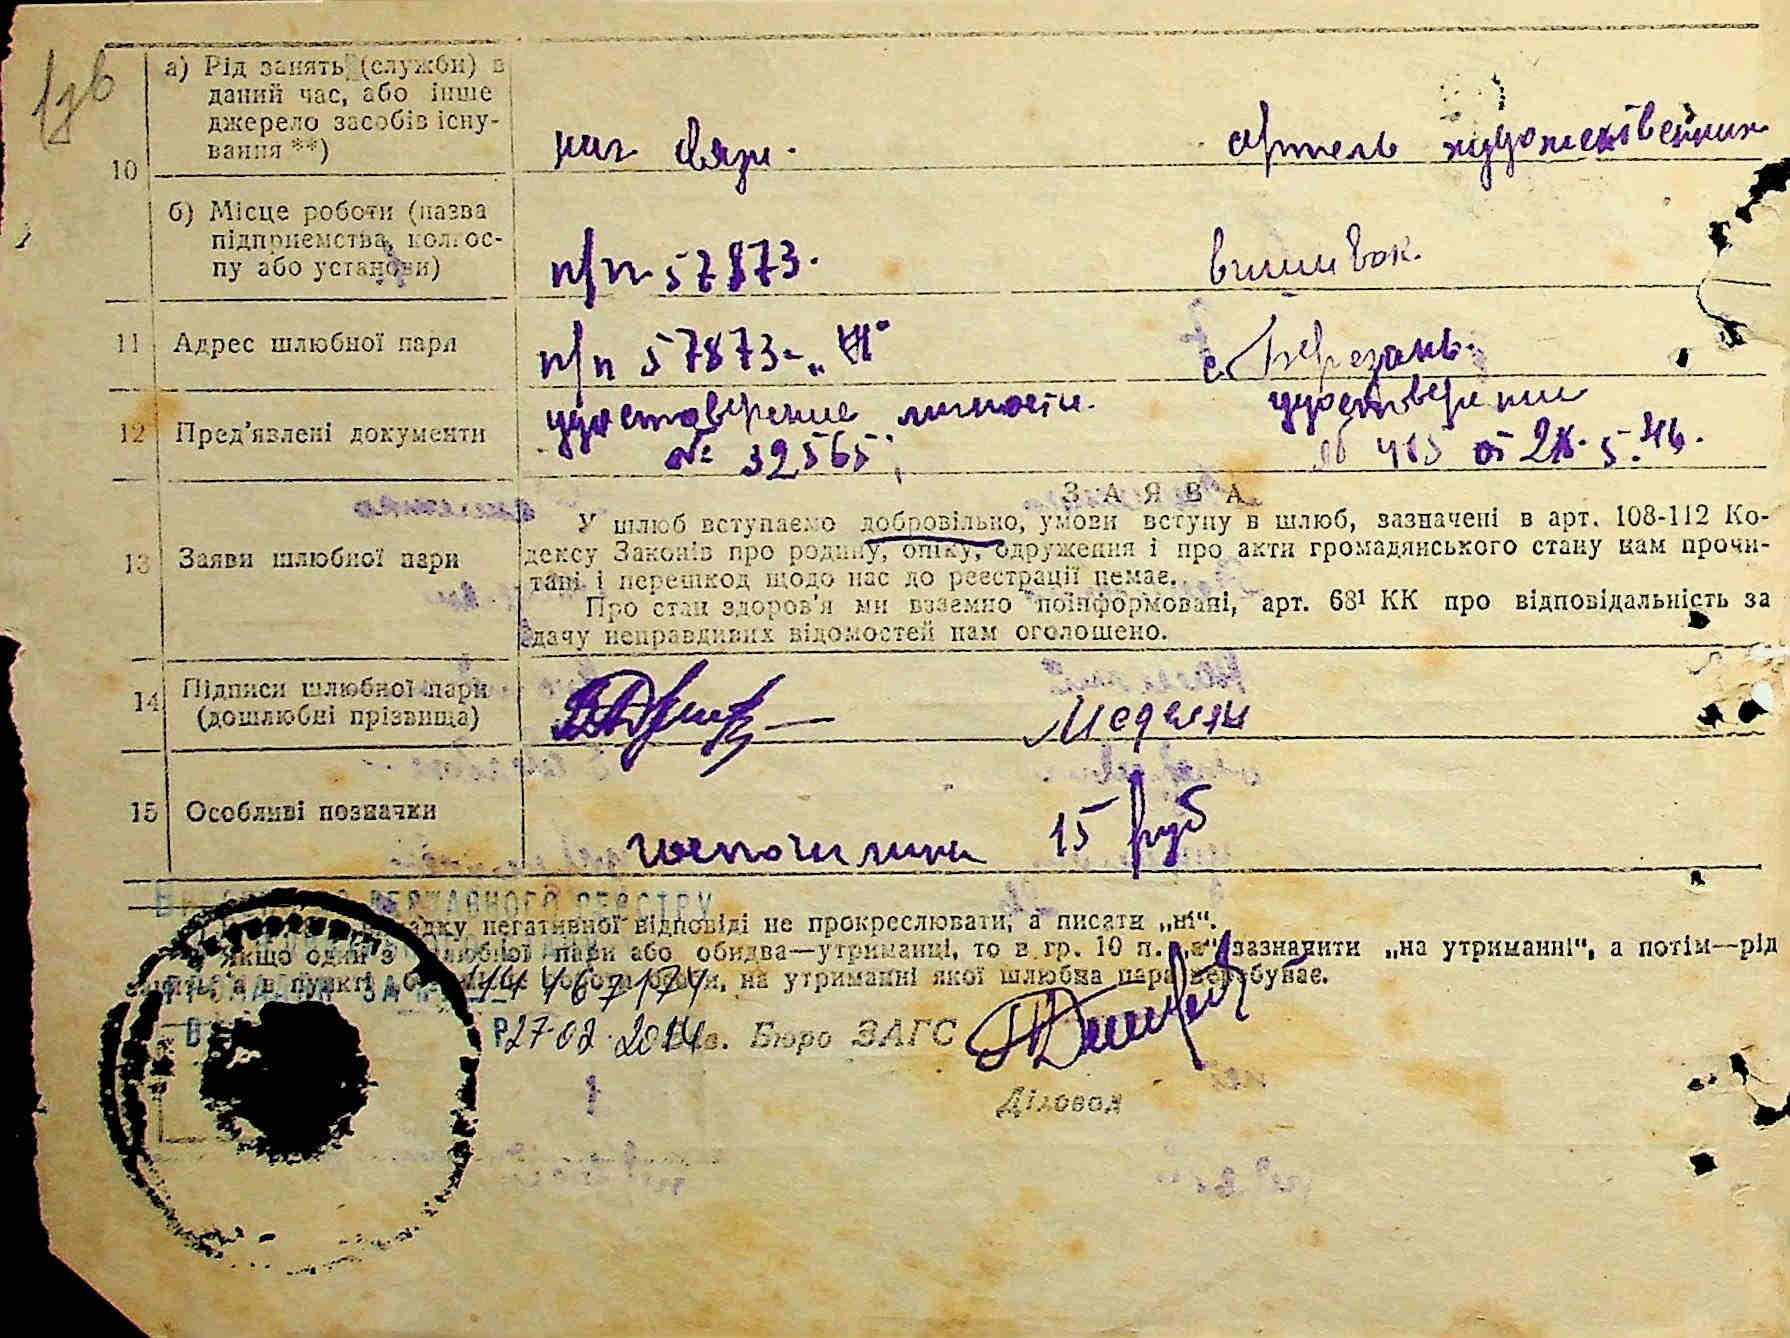 а) Рід занять (служби) в
даний час, або інше
джерело засобів існу-
вання **)
10
нач связи.
артель художественних
б) Місце роботи (назва
підприємства, колгос-
пу або установи)
п/п 57873.
вишивок.
11 Адрес шлюбної пари
п/п 57873 - „
с. Березань.
12 Пред'явлені документи
удостоверение личности.
№ 32565
удостоверение
от 28. 5. 46.
З А Я В А
13 Заяви шлюбної пари
У шлюб вступаємо добровільно, умови вступу в шлюб, зазначені в арт. 108-112 Ко-
дексу Законів про родину, опіку, одруження і про акти громадянського стану нам прочи-
тані і перешкод щодо нас до реєстрації немає.
Про стан здоров'я ми взаємно поінформовані, арт. 68¹ КК про відповідальність за
дачу неправдивих відомостей нам оголошено.
14 Підписи шлюбної пари
(дошлюбні прізвища)
15 Особливі позначки
госпошлина 15 руб
ДЕРЖАВНОГО РЕЄСТРУ
негативної відповіді не прокреслювати, а писати „ні“.
Якщо один з шлюбної пари або обидва—утриманці, то в гр. 10 п. „а“ зазначити „на утриманні“, а потім—рід
на утриманні якої шлюбна пара перебуває.
27.02.2014
Зав. Бюро ЗАГС
Діловод